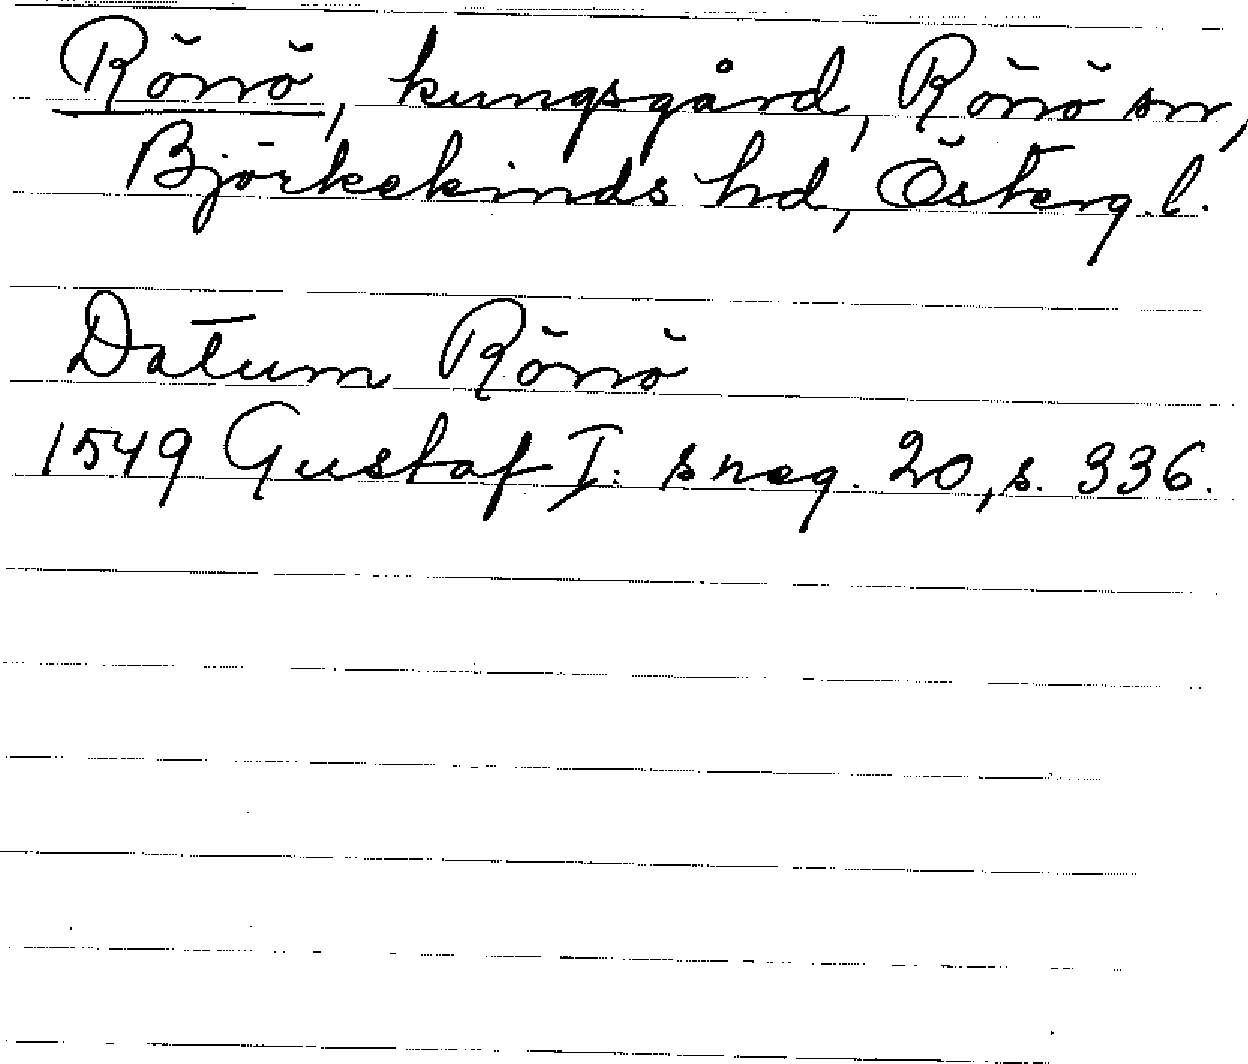 Rönö, kungsgård, Rönö sn,
Björkekinds hd, Österg. l.
Datum Rönö
1549 Gustaf I: s reg. 20, s. 336.